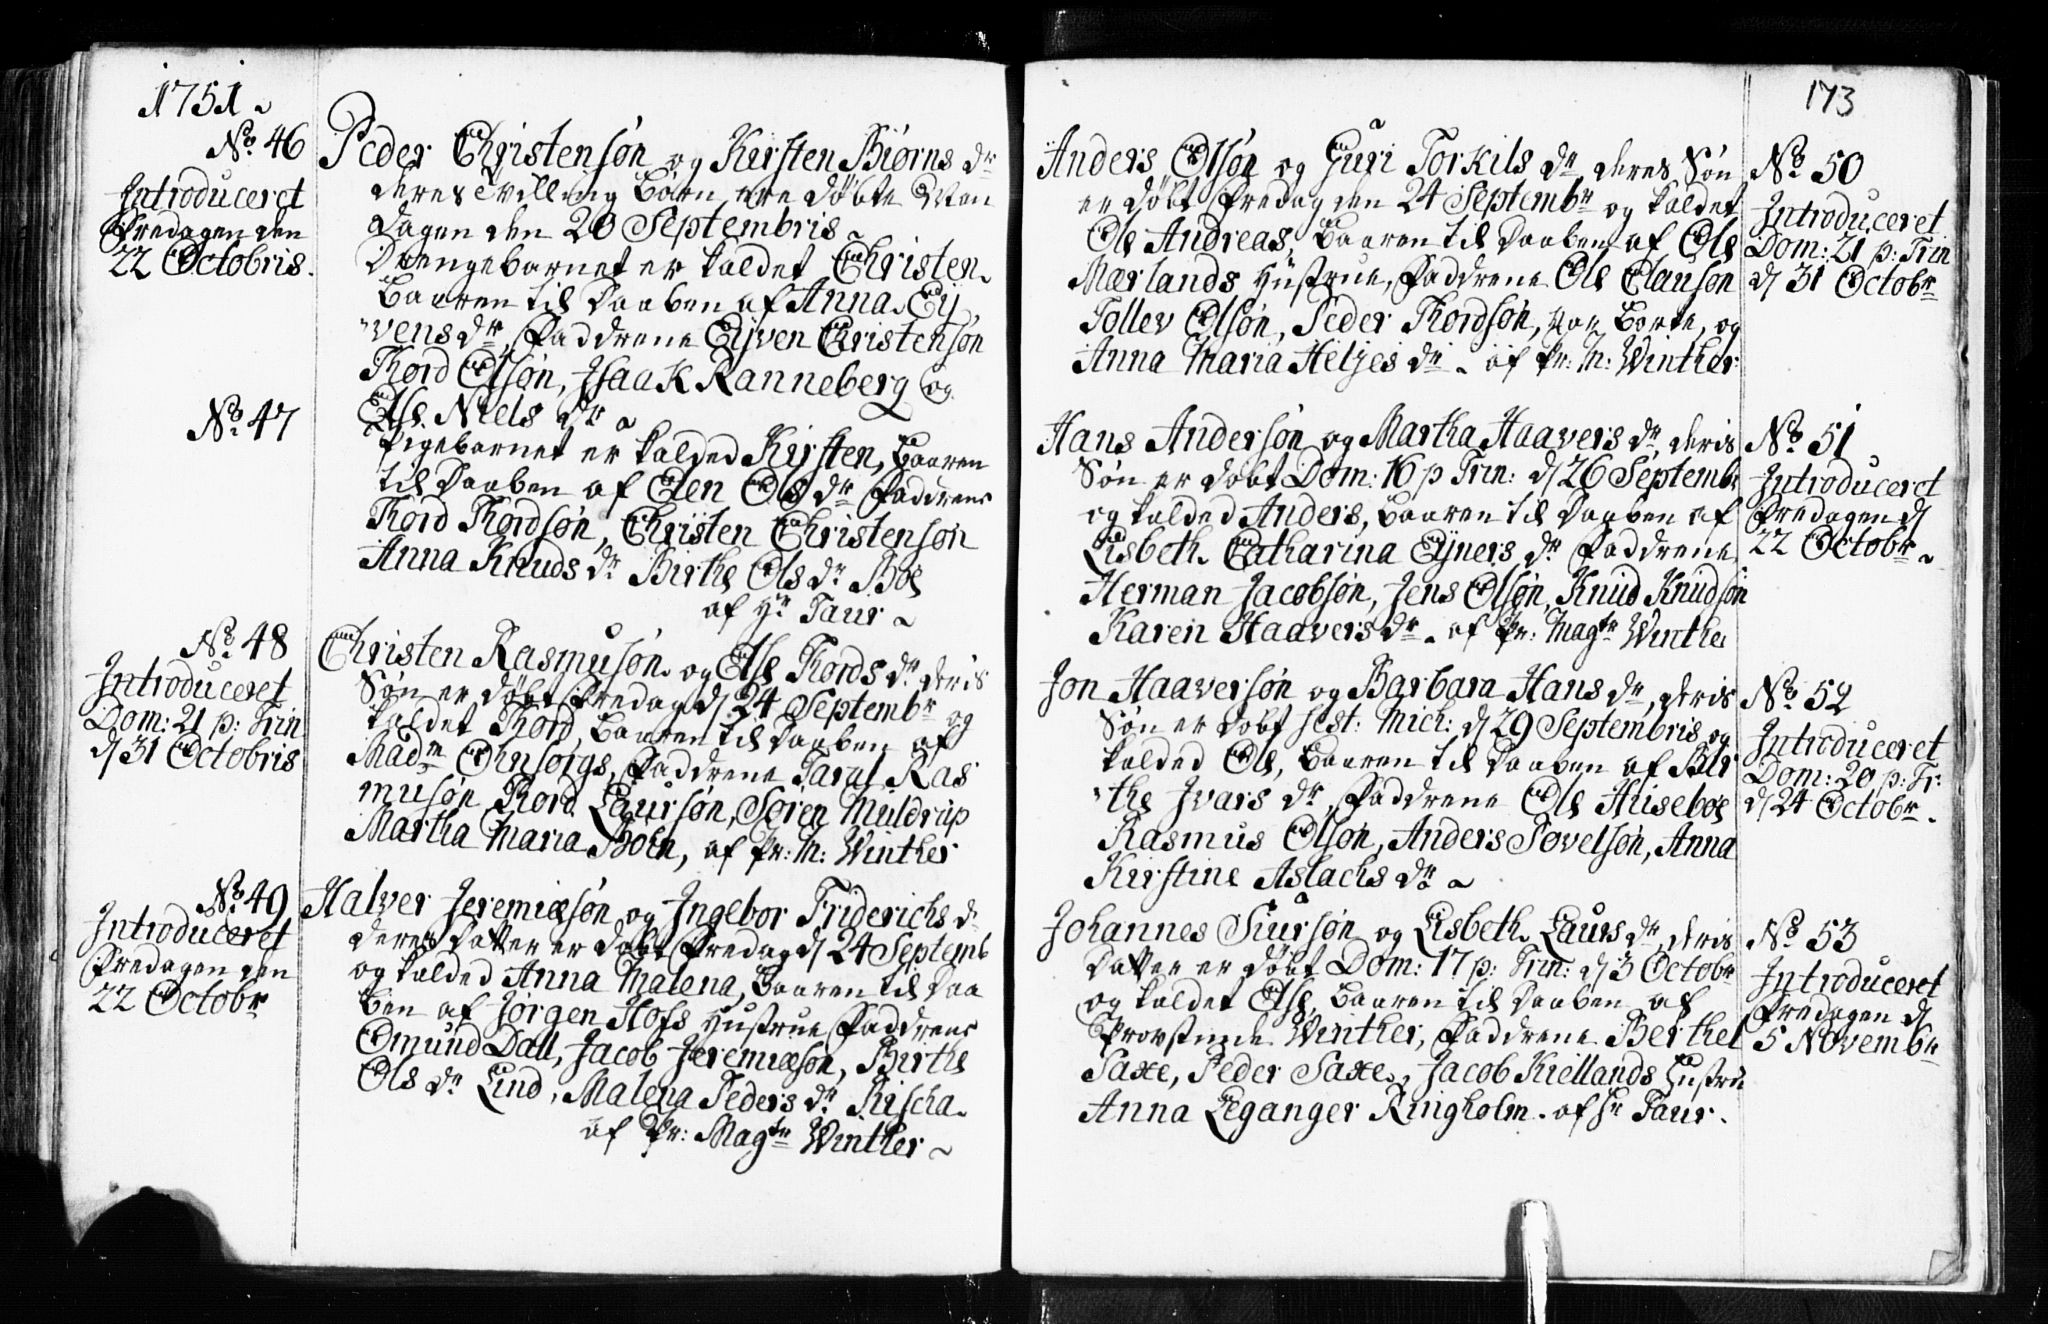 1751
No. 46
Introduceret
Fredagen den
22 Octobris.
Peder Christensøn og Kirsten Biørns dr
deres Tvilling Børn ere døbte
dagen den 20 Septembris
Drengebarnet er kaldet Christen
Baaren til Daaben af Anna Eij
vens dr, Faddrene Eijven Christensøn
Thord Olsøn, Isaak Ranneberg og
Else Niels dr
No. 47
Pigebarnet er kalded Kirsten, Baaren
til Daaben af Elen Ols dr Faddrene
Thord Thordsøn, Christen Christensøn
Anna Knuds dr Birthe Ols dr Bøe
af Hr Taur
No. 48
Introduceret
Dom: 21 p: Trin
d 31 Octobris
Christen Rasmusøn og Else Thords dr deris
Søn er døbt Fredag d 24 Septembr og
kaldet Thord, Baaren til Daaben af
Madm Ohnsorgs, Faddrene Taral Ras
musøn Thord Laursøn, Søren Muldrup
Martha Maria Boen, af Pr: M: Winther
No. 49
Introduceret
Fredagen den
22 Octobr
Halver Jeremiæsøn og Ingebor Friderichs d
deres Datter er døbt Fredag d 24 Septemb
og kalded Anna Malena, Baaren til Daa
ben af Jørgen Hofs Hustrue Faddrene
Omund Dall, Jacob Jeremiæsøn, Birthe
Ols dr Lind, Malena Peders dr Rischa
af Pr: Magtr Winther
173
Anders Olsøn og Guri Torkils dr, deres Søn
er døbt Fredag den 24 Septembr og kaldet
Ole Andreas, Baaren til Daaben af Ole
Mærlands Hustrue, Faddrene Ole Olausøn
Tollev Olsøn, Peder Thordsøn, og
Anna Maria Heljes dr af Pr: M: Winther
No 50
Introduceret
Dom: 21 p: Trin
d 31 Octobr
Hans Andersøn og Martha Haavers dr, deris
Søn er døbt Dom: 16 p Trin: d 26 Septembr
og kalded Anders, Baaren til Daaben af
Lisbeth Catharina Ejners dr Faddrene
Herman Jacobsøn, Jens Olsøn, Knud Knudsøn
Karen Haavers dr af Pr: Magtr Winthe
No 51
Introduceret
Fredagen d
22 Octobr
Jon Haaversøn og Barbara Hans dr, deris
Søn er døbt fest: Mich: d 29 Septembris og
kalded Ole, Baaren til Daaben af Bir
the Ivars dr, Faddrene Ole Husebøe
Rasmus Olsøn, Anders Tovelsøn, Anna
Kirstine Aslachs dr
No 52
Introduceret
Dom: 20 p: Tr:
d 24 Octobr
Johannes Siursøn og Lisbeth Laurs dr, deris
Datter er døbt Dom: 17 p: Trin: d 3 Octobr
og kaldet Else, Baaren til Daaben af
Provstinde Winther, Faddrene Berthel
Saxe, Peder Saxe, Jacob Kiellands Hustru
Anna Leganger Ringholm af Hr Taur
No 53
Introduceret
Fredagen d
5 Novembr